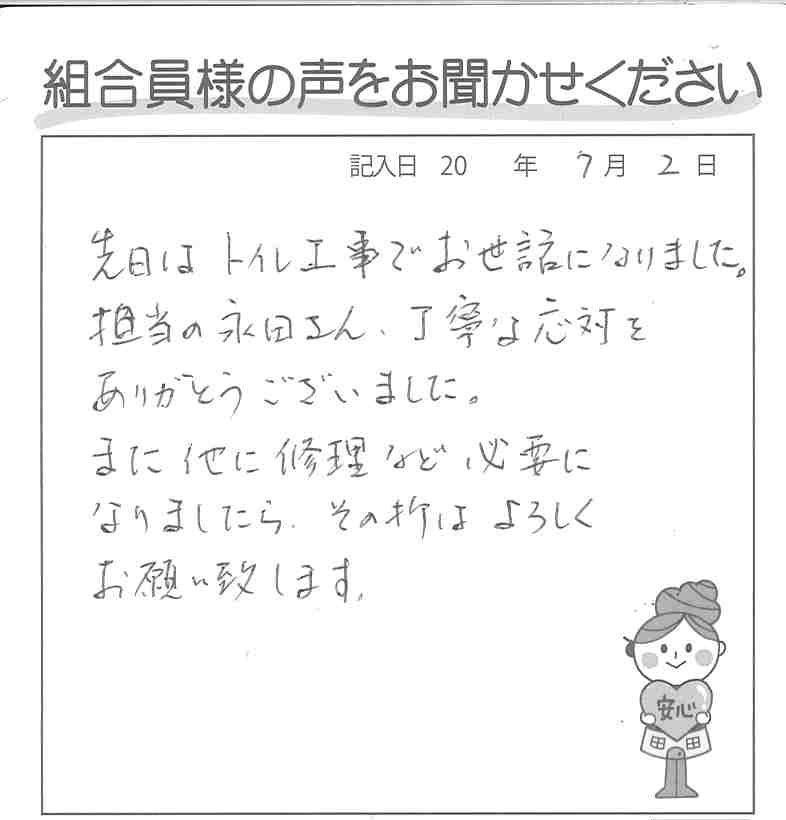 組合員様の声をお聞かせください
記入日 20 年 7月 2日
先日は トイレ工事で お世話になりました。
担当の永田さん、丁寧な応対を
ありがとうございました。
また他に修理など必要に
なりましたら、その折は よろしく
お願い致します。
安心